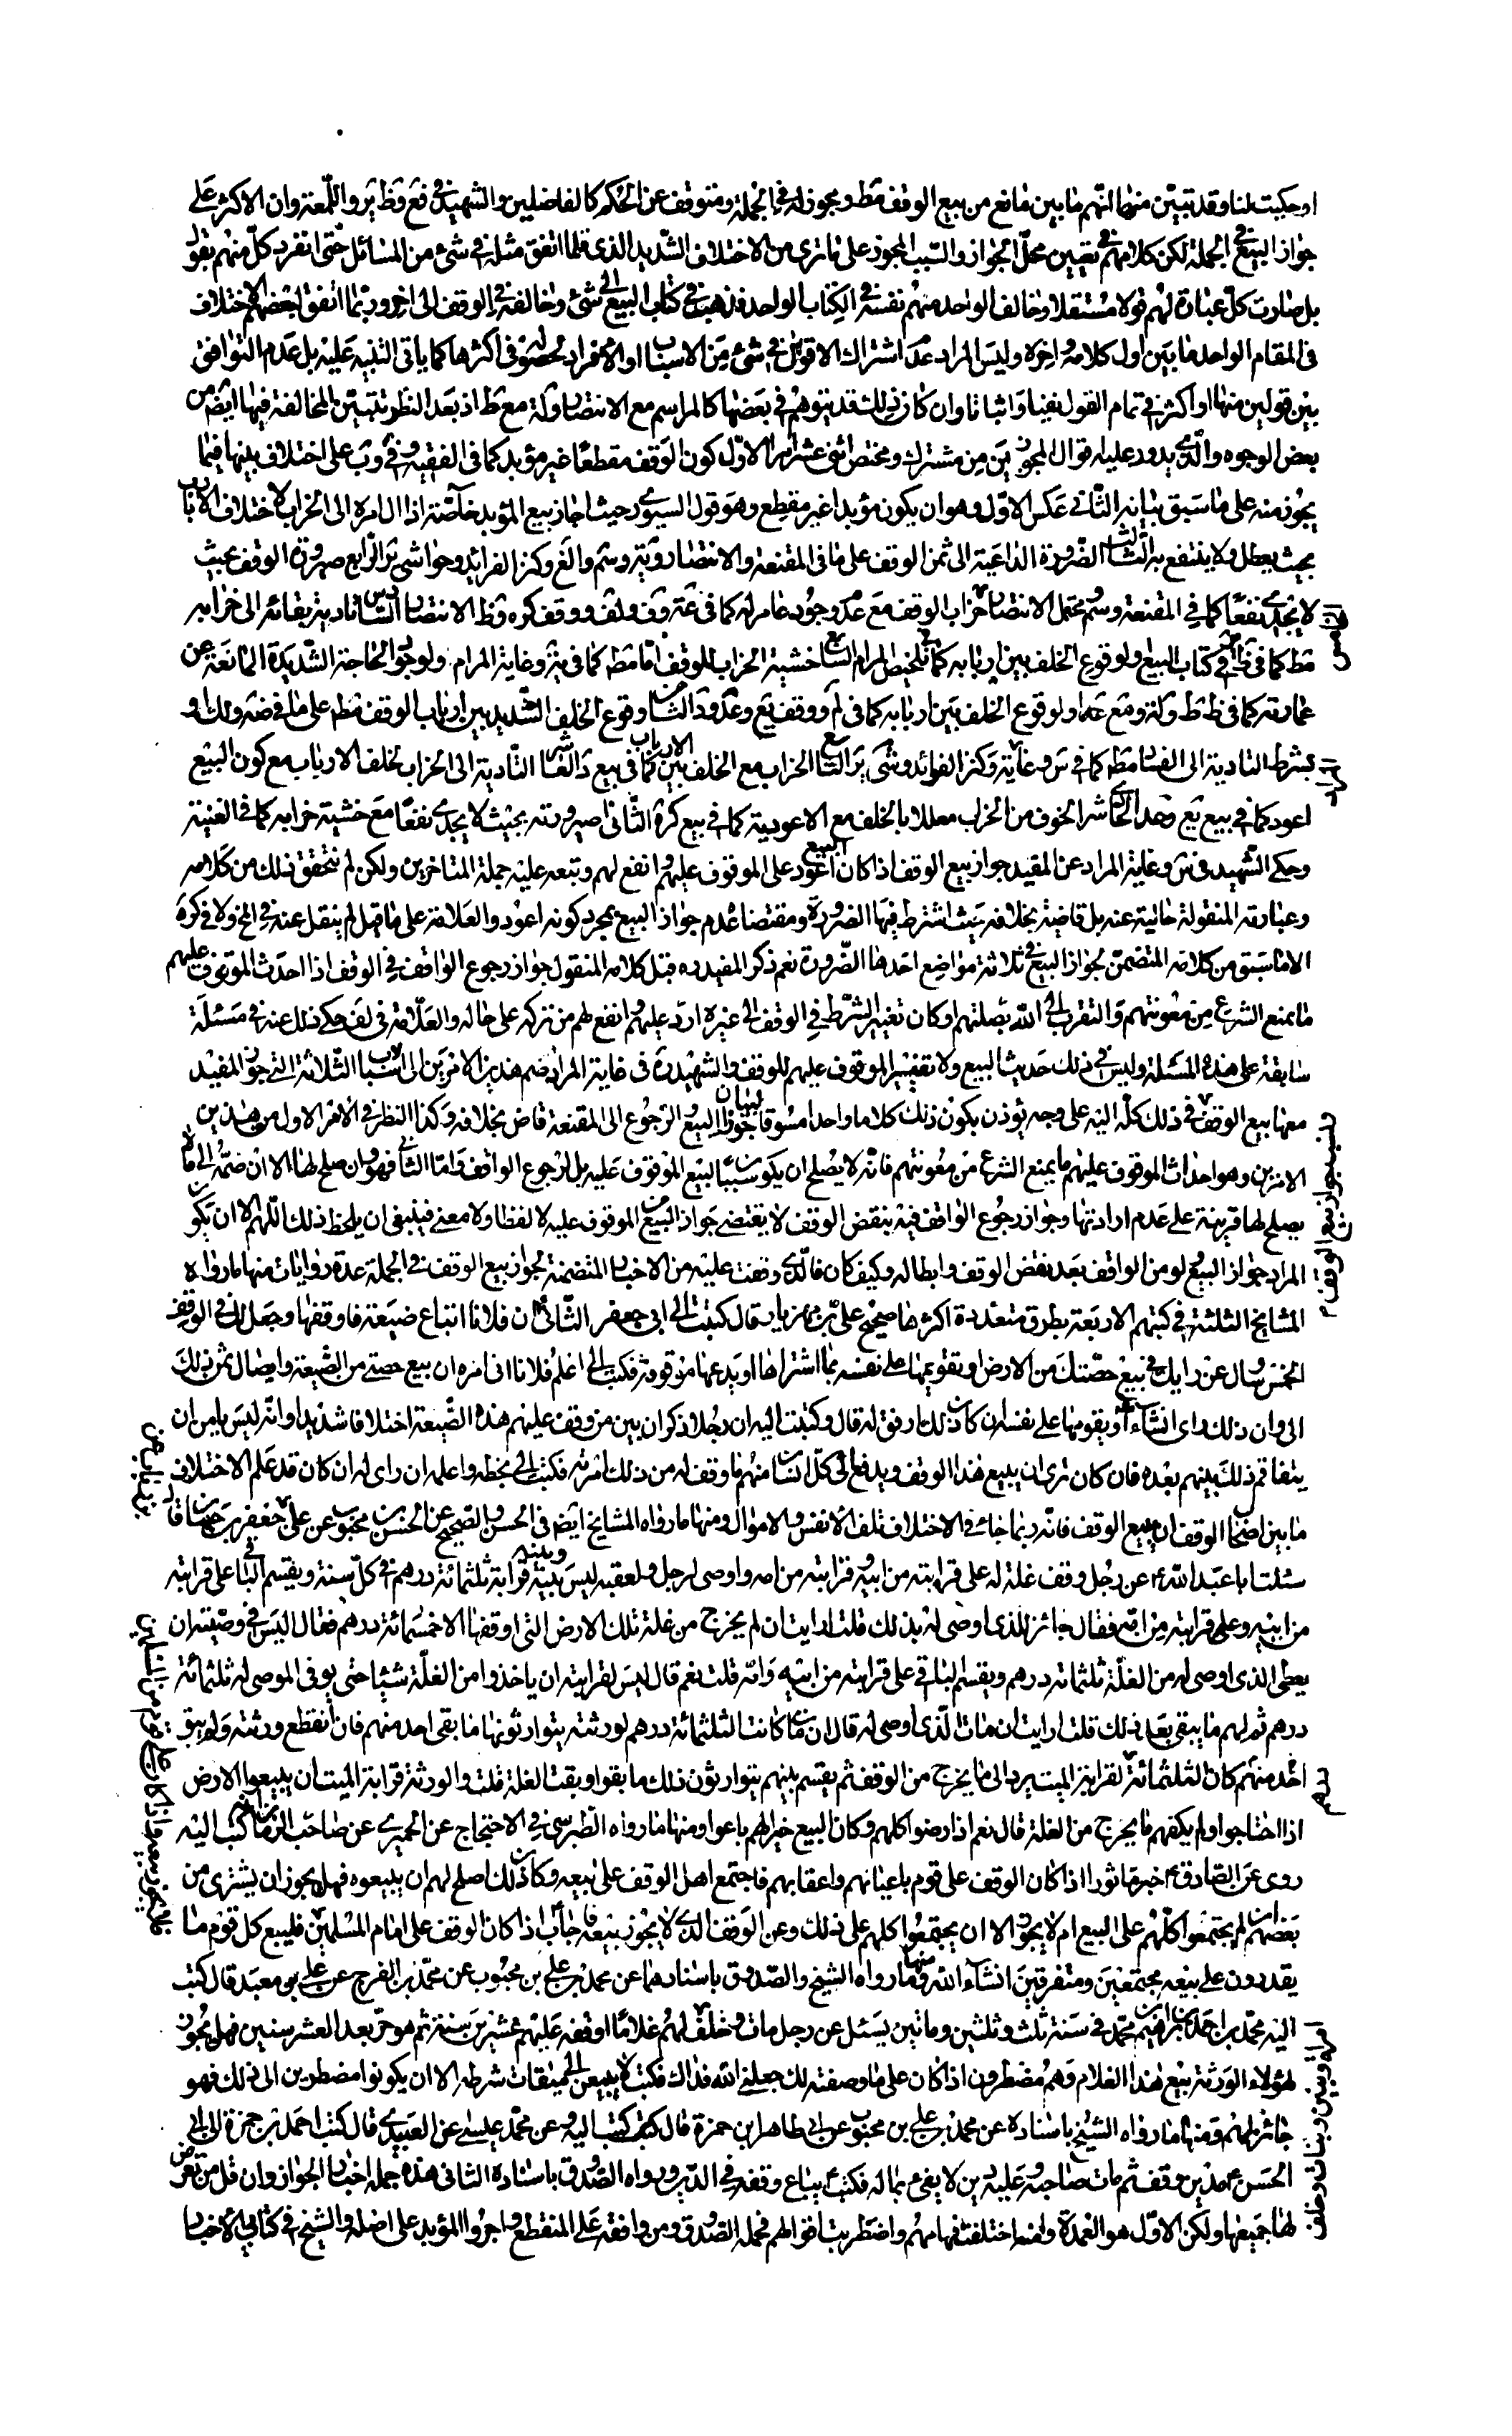 او حكيت لنا وقد تبيّن منها انهم ما بين مانع من بيع الوقف مط ومجوز له في الجملة ومتوقف عن الحكم كالفاضلين والشهيد في فع وظ ير واللمعة وان الاكثر على
جواز البيع في الجملة لكن كلامهم في تعيين محلّ الجواز والسّبب المجوز على ما ترى من الاختلاف الشّديد الذى قلما اتفق مثله في شئ من المسائل حتى انفرد كلّ منهم بقول
بل صارت كلّ عبارة لهم قولا مستقلا وخالف الواحد منهم نفسه في الكتاب الواحد فذهب في كتاب البيع الى شئ وخالفه في الوقف الى اخر وربّما اتفق لبعضهم الاختلاف
فى المقام الواحد ما بين اول كلامه واخره وليس المراد عدم اشتراك الاقوال في شئ من الاسباب او الانفراد لحصوله فى اكثرها كما ياتى التنبيه عليه بل عدم التوافق
بين قولين منها او اكثر في تمام القول نفيا واثباتا وان كان ذلك قد يتوهم في بعضها كالمراسم مع الانتصار وكة مع ط اذ بعد النظر تتبيّن المخالفة فيها ايضا من
بعض الوجوه والّذى يدور عليه اقوال المجوزين من مشترك ومختص اثنى عشر امرا الاوّل كون الوقف منقطعا غير مؤبد كما فى الفقيه وفى وب على اختلاف بينها فيما
يجوز منه على ما سبق بيانه الثّانى عكس الاوّل وهو ان يكون مؤبدا غير منقطع وهو قول السيورى حيث اجاز بيع المؤبد خاصّة اذا ال امره الى الخراب لاختلاف الارباب
بحيث يعطل ولا ينتفع به الثالث الضّرورة الداعية الى ثمن الوقف على ما فى المقنعة والانتصار وية وسم والغ وكنز الفرائد وحواشى ير الرّابع صيرورة الوقف بحيث
لا يجدى نفعا كما في المقنعة وسم ومحتمل الانتصار الخامس خراب الوقف مع عدم وجود عامر له كما فى عة وف ولف ووقف كره وظ الانتصار السّادس تادية بقائه الى خرابه
مط كما فى ظ في كتاب البيع ولو لوقوع الخلف بين اربابه كما فى تلخيص المرام السّابع خشية الخراب للوقف امّا مط كما فى ير وغاية المرام ولو لوجود الحاجة الشّديدة المانعة عن
عمارته كما فى ظ ط وكة ومع عدد او لوقوع الخلف بين اربابه كما فى لم ووقف يع وعد ود الثّامن وقوع الخلف الشّديد بين ارباب الوقف مط على ما فى ضه ولك او
بشرط التادية الى الفساد مط كما فى س وغاية وكنز الفوائد وشى ير التّاسع الخراب مع الخلف بين الارباب كما فى بيع د العاشر التّادية الى الخراب لخلف الارباب مع كون البيع
اعود كما في بيع يع وعد الحادى عشر الخوف من الخراب معللا بالخلف مع الاعودية كما في بيع كره الثّانى عشر صيرورته بحيث لا يجدى نفعا مع خشية خرابه كما فى الغنية
وحكى الشّهيد فى س وغاية المراد عن المفيد جواز بيع الوقف اذا كان البيع اعود على الموقوف عليهم وانفع لهم وتبعه عليه جملة المتاخرين ولكن لم نتحقق ذلك من كلامه
وعبارته المنقولة خالية عنه بل قاضية بخلافه حيث اشترط فيها الضّرورة ومقتضاه عدم جواز البيع بمجرد كونه اعود والعلامة على ما قيل لم ينقل عنه في لخ ولا فى كرة
الا ما سبق من كلامه المتضمن لجواز البيع في ثلاثة مواضع احدها الضّرورة نعم ذكر المفيد ره قبل كلامه المنقول جواز رجوع الواقف في الوقف اذا احدث الموقوف عليهم
ما يمنع الشرع من معونتهم والتقرب الى الله بصلتهم او كان تغيير الشّرط في الوقف الى غيره ارد عليهم وانفع لهم من تركه على حاله والعلّامة فى لف حكى ذلك عنه فى مسئلة
سابقة على هذه المسئلة وليس في ذلك حديث البيع ولا تفسير الموقوف عليهم للوقف والشهيد ره فى غاية المراد ضم هذين الامرين الى الاسباب الثلاثة التي جوز المفيد
معها بيع الوقف في ذلك كلّه اليه على وجه يؤذن بكون ذلك كلاما واحدا مسوقا لبيان جواز البيع والرجوع الى المقنعة قاض بخلافه وكذا النظر فى الامر الاول من هذين
الامرين وهو احداث الموقوف عليهم ما يمنع الشرع من معونتهم فانّه لا يصلح ان يكون سببا لبيع الموقوف عليه بل لرجوع الواقف وامّا الثانى فهو وان صلح لها الا ان ضمّه الى ما لا
يصلح لها قرينة على عدم ارادتها وجواز رجوع الواقف فيه بنقض الوقف لا يقتضى جواز البيع من الموقوف عليه لا لفظا ولا معنى فينبغى ان يلحظ ذلك اللّهم الا ان يكون
المراد جواز البيع لو من الواقف بعد نقض الوقف وابطاله وكيف كان فالّذى وقفت عليه من الاخبار المتضمنة لجواز بيع الوقف فى الجملة عدة روايات منها ما رواه
المشايخ الثلثة في كتبهم الاربعة بطرق متعددة اكثرها صحيح على بن مهزيار قال كتبت الى ابى جعفر الثّانى ان فلانا ابتاع ضيعة فاوقفها وجعل لك فى الوقف
الخمس وسال عن رايك في بيع حصّتك من الارض او تقويمها على نفسه بما اشتراها او يدعها موقوفة فكتب الى اعلم فلانا انى امره ان بيع حصتى من الضّيعة وايصال ثمن ذلك
الى وان ذلك راى انشاء الله او يقومها على نفسه ان كان ذلك ارفق له قال وكتبت اليه ان رجلا ذكر ان بين من وقف عليهم هذه الضّيعة اختلافا شديدا وانّه ليس يامن ان
يتفاقم ذلك بينهم بعده فان كان ترى ان يبيع هذا الوقف ويدفع الى كلّ انسان منهم ما وقف له من ذلك امرته فكتب الى بخطه واعلمه ان راى له ان كان قد علم الاختلاف
ما بين اصحاب الوقف ان يبيع الوقف فانّه ربما جاء في الاختلاف تلف الانفس والاموال ومنها ما رواه المشايخ ايضا فى الحسن والصّحيح عن الحسن بن محبوب عن على بن جعفر بن حنان قال
سئلت ابا عبد الله ع عن رجل وقف غلة له على قرابته من ابيه وقرابته من امه واوصى لرجل ولعقبه ليس بينه وبينه قرابة ثلثمائة درهم فى كلّ سنة ويقسم الباقى على قرابته
من ابيه وعلى قرابته من امّه فقال جائز للذى اوصى له بذلك قلت ارايت ان لم يخرج من غلة تلك الارض التى اوقفها الا خمسمائة درهم فقال اليس في وصيّته ان
يعطى الذى اوصى له من الغلّة ثلثمائة درهم ويقسم الباقى على قرابته من ابيه وامّه قلت نعم قال ليس لقرابته ان ياخذوا من الغلّة شيئا حتى يوفى الموصى له ثلثمائة
درهم ثم لهم ما يبقى بعد ذلك قلت ارايت ان مات الّذى اوصى له قال ان مات كانت الثلثمائة درهم لورثته يتوارثونها ما بقى احد منهم فان انقطع ورثته ولم يبق
احد منهم كان الثلثمائة لقرابة الميت يرد الى ما يخرج من الوقف ثم يقسم بينهم يتوارثون ذلك ما بقوا وبقت الغلة قلت والورثة قرابة الميت ان يبيعوا الارض
اذا احتاجوا ولم يكفهم ما يخرج من الغلة قال نعم اذا رضوا كلهم وكان البيع خيرا لهم باعوا ومنها ما رواه الطّبرسى في الاحتجاج عن الحميرى عن صاحب الزمان انه كتب اليه
روى عن الصّادق ع خبر ماثور اذا كان الوقف على قوم باعيانهم واعقابهم فاجتمع اهل الوقف على بيعه وكان ذلك اصلح لهم ان يبيعوه فهل يجوز ان يشترى من
بعضهم ان لم يجتمعوا كلّهم على البيع ام لا يجوز الا ان يجتمعوا كلهم على ذلك وعن الوقف الّذى لا يجوز بيعه فاجاب اذا كان الوقف على امام المسلمين فليبع كل قوم ما
يقدرون على بيعه مجتمعين ومتفرقين انشاء الله ومنها ما رواه الشيخ والصّدوق باسنادهما عن محمد بن على بن محبوب عن محمّد بن الفرج عن على بن معبد قال كتب
اليه محمّد بن احمد بن ابراهيم بن محمّد فى سنة ثلث وثلثين ومائتين يسئل عن رجل مات وخلف لهم غلاما اوقفه عليهم عشر سنين ثم هو حرّ بعد العشر سنين فهل يجوز
لهؤلاء الورثة بيع هذا الغلام وهم مضطرون اذا كان على ما وصفته لك جعلنى الله فداك فكتب لا يبيعن الى ميقات شرطه الا ان يكونوا مضطرين الى ذلك فهو
جائز لهم ومنها ما رواه الشّيخ باسناده عن محمّد بن على بن محبوب عن ابى طاهر ابن حمزة قال كتب اليه وعن محمّد بن عيسى عن العبيدى قال كتب احمد بن حمزة الى ابى
الحسن ع مدين وقف ثم مات صاحبه وعليه دين لا يفى بماله فكتب ع يباع وقفه فى الدّين ورواه الصّدوق باسناده الثانى هذه جملة اخبار الجواز وان قل من تعرض
لها جميعها ولكن الاوّل هو العمدة ومنه اختلفت فهامهم واضطربت اقوالهم فحمله الصّدوق ومن وافقه على المنقطع واجروا المؤبد على اصله والشيخ في كتابى الاخبار